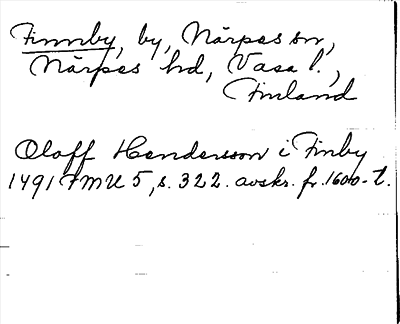 Finnby, by, Närpes sn,
Närpes hd, Vasa l.,
Finland
Oloff Hendersson i Finby
1491 FMU 5, s. 322. avskr. fr. 1600-t.